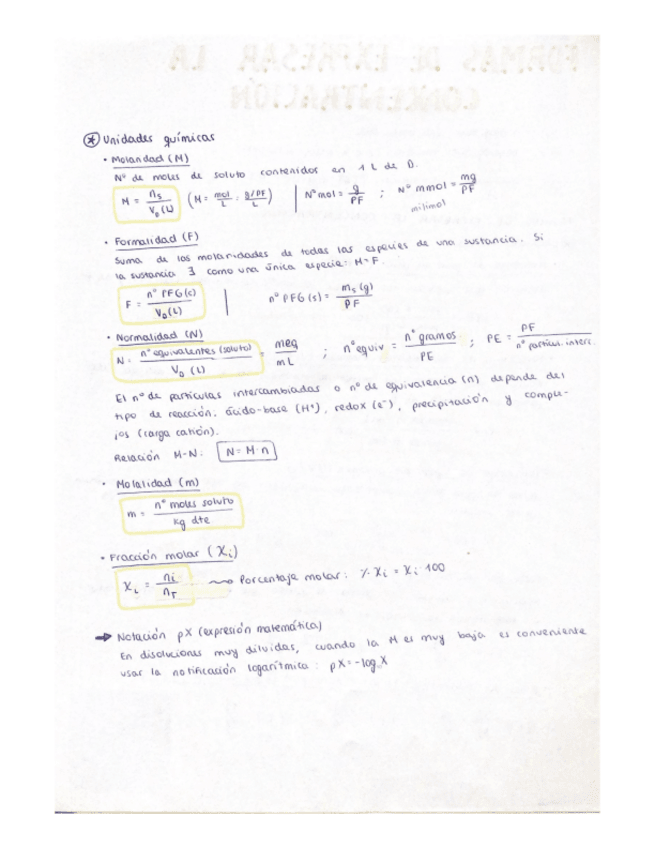 FORMAS DE EXPRESAR LA
CONCENTRACIÓN
* Unidades químicas
· Molaridad (M)
Nº de moles de soluto contenidos en 1 L de D.
M = ns / VD (L) (M = mol/L = g/PF / L) | Nº mol = g/PF ; Nº mmol = mg/PF
milimol
· Formalidad (F)
Suma de las molaridades de todas las especies de una sustancia. Si
la sustancia ∃ como una única especie: M=F.
F = nº PFG (s) / VD (L) | nº PFG (s) = ms (g) / PF
· Normalidad (N)
N = nº equivalentes (soluto) / VD (L) = meq / mL ; nº equiv = nº gramos / PE ; PE = PF / nº partícul. interc.
El nº de partículas intercambiadas o nº de equivalencia (n) depende del
tipo de reacción: ácido-base (H⁺), redox (e⁻), precipitación y comple-
jos (carga catión).
Relación M-N: N = M·n
· Molalidad (m)
m = nº moles soluto / kg dte
· Fracción molar (Xi)
Xi = ni / nT ⟿ Porcentaje molar: % Xi = Xi · 100
→ Notación pX (expresión matemática)
En disoluciones muy diluidas, cuando la M es muy baja es conveniente
usar la notificación logarítmica: pX = -log X